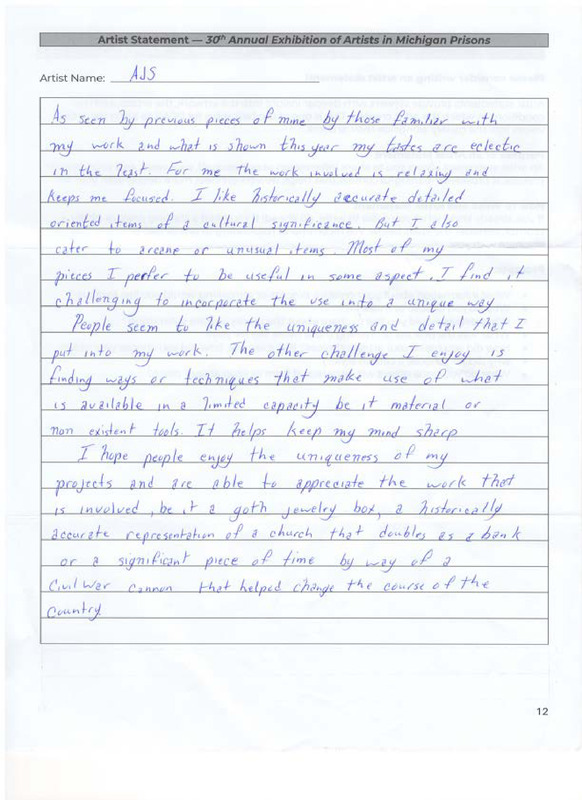 Artist Statement — 30th Annual Exhibition of Artists in Michigan Prisons
Artist Name: AJS
As seen by previous pieces of mine by those familiar with
my work and what is shown this year my tastes are eclectic
in the least. For me the work involved is relaxing and
keeps me focused. I like historically accurate detailed
oriented items of a cultural significance. But I also
cater to arcane or unusual items. Most of my
pieces I perfer to be useful in some aspect. I find it
challenging to incorporate the use into a unique way.
People seem to like the uniqueness and detail that I
put into my work. The other challenge I enjoy is
finding ways or techniques that make use of what
is available in a limited capacity be it material or
non existent tools. It helps keep my mind sharp
I hope people enjoy the uniqueness of my
projects and are able to appreciate the work that
is involved, be it a goth jewelry box, a historically
accurate representation of a church that doubles as a bank
or a significant piece of time by way of a
Civil War cannon that helped change the course of the
Country.
12